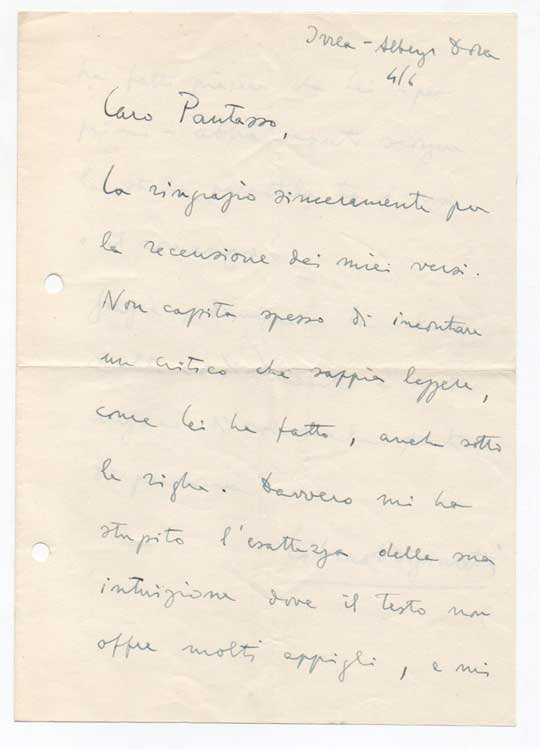 Ivrea - Albergo Dora
4/6
Caro Pautasso,
La ringrazio sinceramente per
la recensione dei miei versi.
Non capita spesso di incontrare
un critico che sappia leggere,
come lei ha fatto, anche sotto
le righe. Davvero mi ha
stupito l'esattezza della sua
intuizione dove il testo non
offre molti appigli, e mi